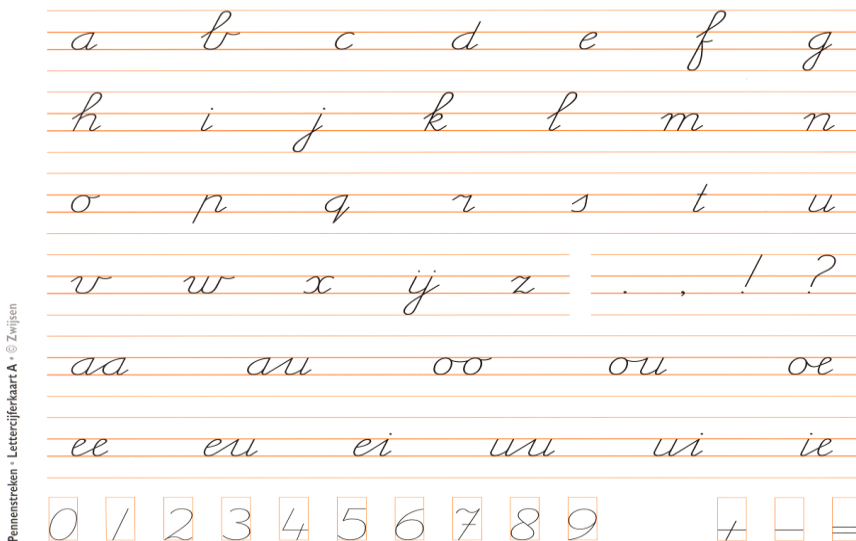 a b c d e f g
h i j k l m n
o p q r s t u
v w x ij z . , ! ?
aa au oo ou oe
ee eu ei uu ui ie
0 1 2 3 4 5 6 7 8 9 + - =
Pennenstreken • Lettercijferkaart A • © Zwijsen